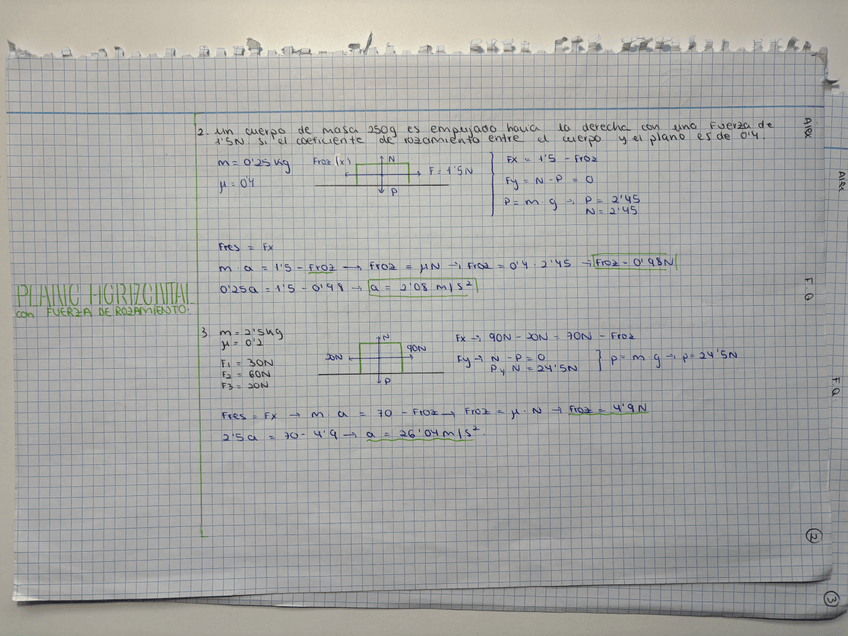 2. Un cuerpo de masa 250g es empujado hacia la derecha con una fuerza de
1'5N si el coeficiente de rozamiento entre el cuerpo y el plano es de 0'4.
m = 0'25 kg
μ = 0'4
Froz (x)
N
F = 1'5 N
P
Fx = 1'5 - Froz
Fy = N - P = 0
P = m · g → P = 2'45
N = 2'45
Fres = Fx
m · a = 1'5 - Froz → Froz = μN → Froz = 0'4 · 2'45 → Froz = 0'98N
0'25a = 1'5 - 0'98 → a = 2'08 m/s²
PLANO HORIZONTAL
con FUERZA DE ROZAMIENTO.
3. m = 2'5kg
μ = 0'2
F1 = 30N
F2 = 60N
F3 = 20N
20N
N
90N
P
Fx → 90N - 20N = 70N - Froz
Fy → N - P = 0
P y N = 24'5N
p = m · g → p = 24'5N
Fres = Fx → m · a = 70 - Froz → Froz = μ · N → Froz = 4'9N
2'5a = 70 - 4'9 → a = 26'04 m/s²
F Q
2
F Q
3